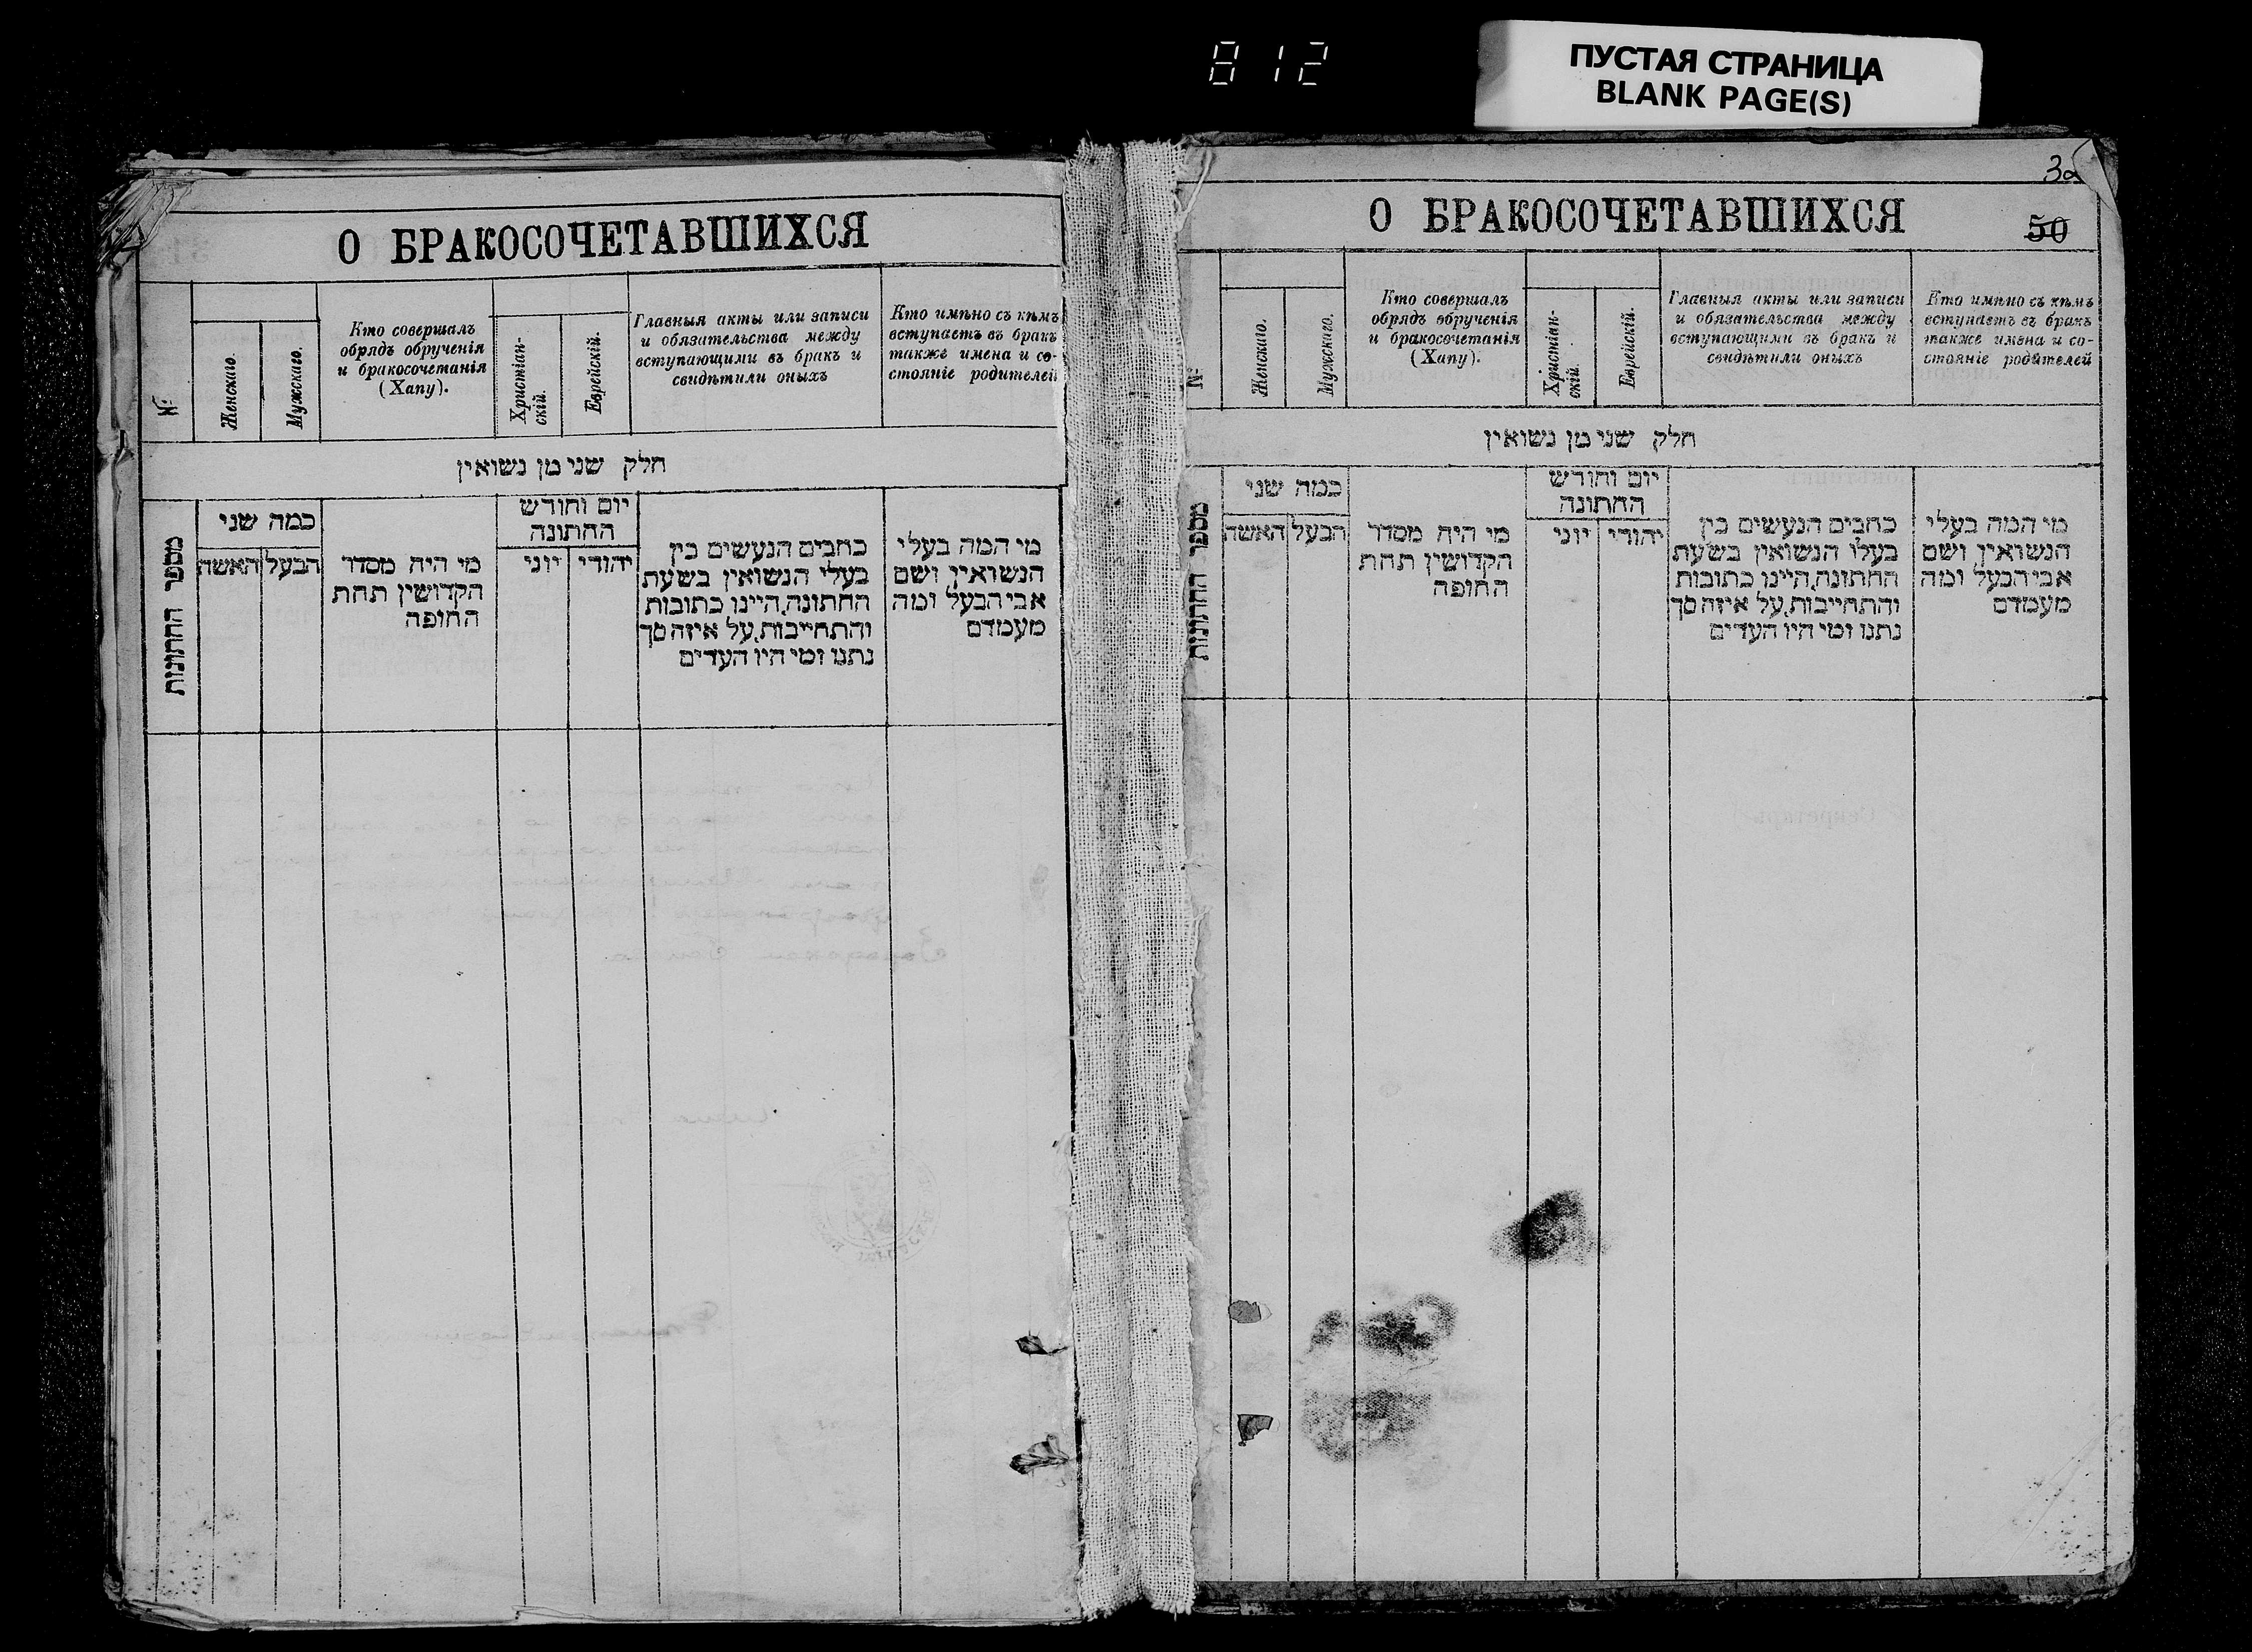 812
ПУСТАЯ СТРАНИЦА
BLANK PAGE(S)
О БРАКОСОЧЕТАВШИХСЯ
№
Женскаго.
Мужскаго.
Кто совершалъ
обрядъ обрученія
и бракосочетанія
(Хапу).
Христіан-
скій.
Еврейскій.
Главныя акты или записи
и обязательства между
вступающими въ бракъ и
свидѣтили оныхъ
Кто имѣно съ кѣмъ
вступаетъ въ бракъ
также имена и со-
стояніе родителей
חלק שני מן נשואין
מספר החתונות
כמה שני
האשה
הבעל
מי היה מסדר
הקדושין תחת
החופה
יום וחודש
החתונה
יוני
יהודי
כתבים הנעשים בין
בעלי הנשואין בשעת
החתונה,היינו כתובות
והתחייבות,על איזה סך
נתנו ומי היו העדים
מי המה בעלי
הנשואין ושם
אבי הבעל ומה
מעמדם
О БРАКОСОЧЕТАВШИХСЯ
50
№
Женскаго.
Мужскаго.
Кто совершалъ
обрядъ обрученія
и бракосочетанія
(Хапу).
Христіан-
скій.
Еврейскій.
Главныя акты или записи
и обязательства между
вступающими въ бракъ и
свидѣтили оныхъ
Кто имѣно съ кѣмъ
вступаетъ въ бракъ
также имѣна и со-
стояніе родителей
חלק שני מן נשואין
מספר החתונות
כמה שני
האשה
הבעל
מי היה מסדר
הקדושין תחת
החופה
יום וחודש
החתונה
יוני
יהודי
כתבים הנעשים בין
בעלו הנשואין בשעת
החתונה,היינו כתובות
והתחייבות,על איזה סך
נתנו ומי היו העדים
מי המה בעלי
הנשואין ושם
אבי הבעל ומה
מעמדם